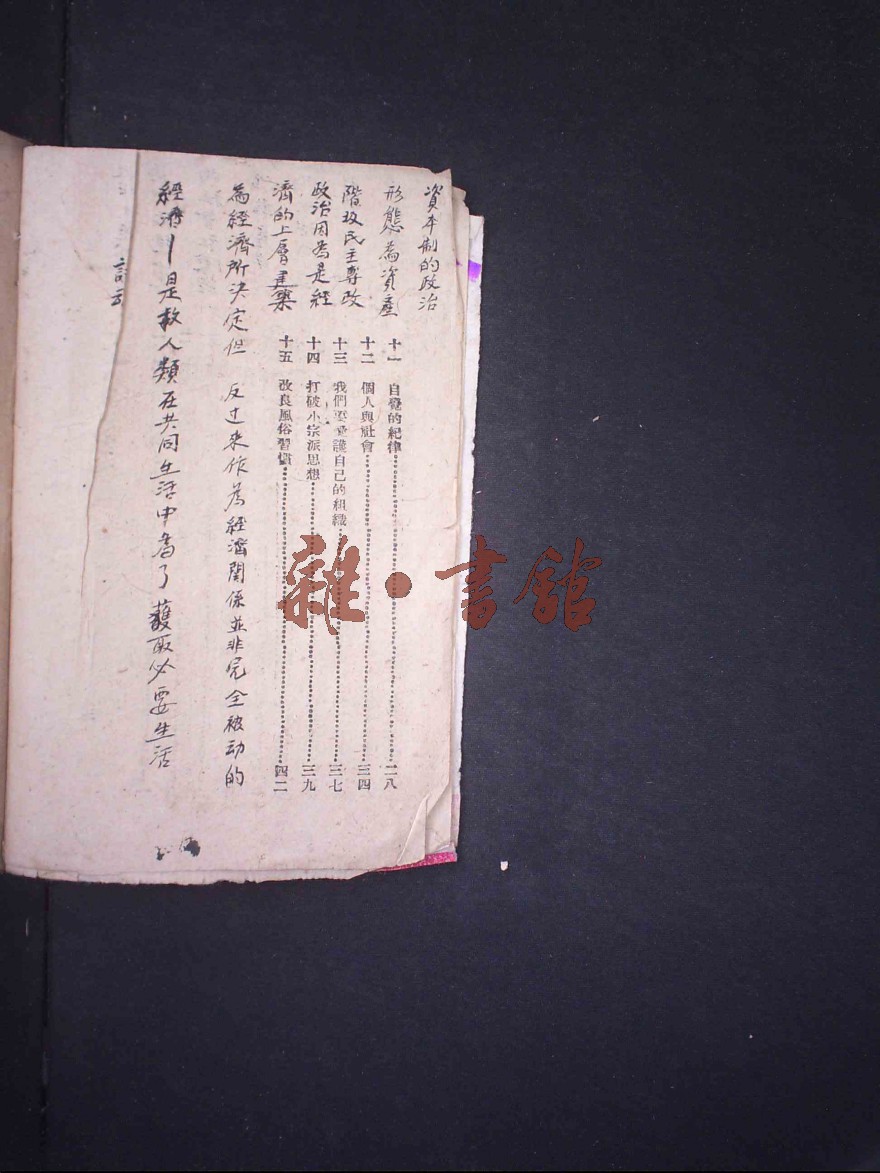 資本制的政治
形態為資產
階級民主專政
政治因為是經
濟的上層建築
為經濟所決定但 反过来作為經濟関係並非完全被动的
經濟—是救人類在共同生活中為了獲取必要生活
十一 自覺的紀律 二八
十二 個人與社會 三四
十三 我們要愛護自己的組織 三七
十四 打破小宗派思想 三九
十五 改良風俗習慣 四二
雜·書館